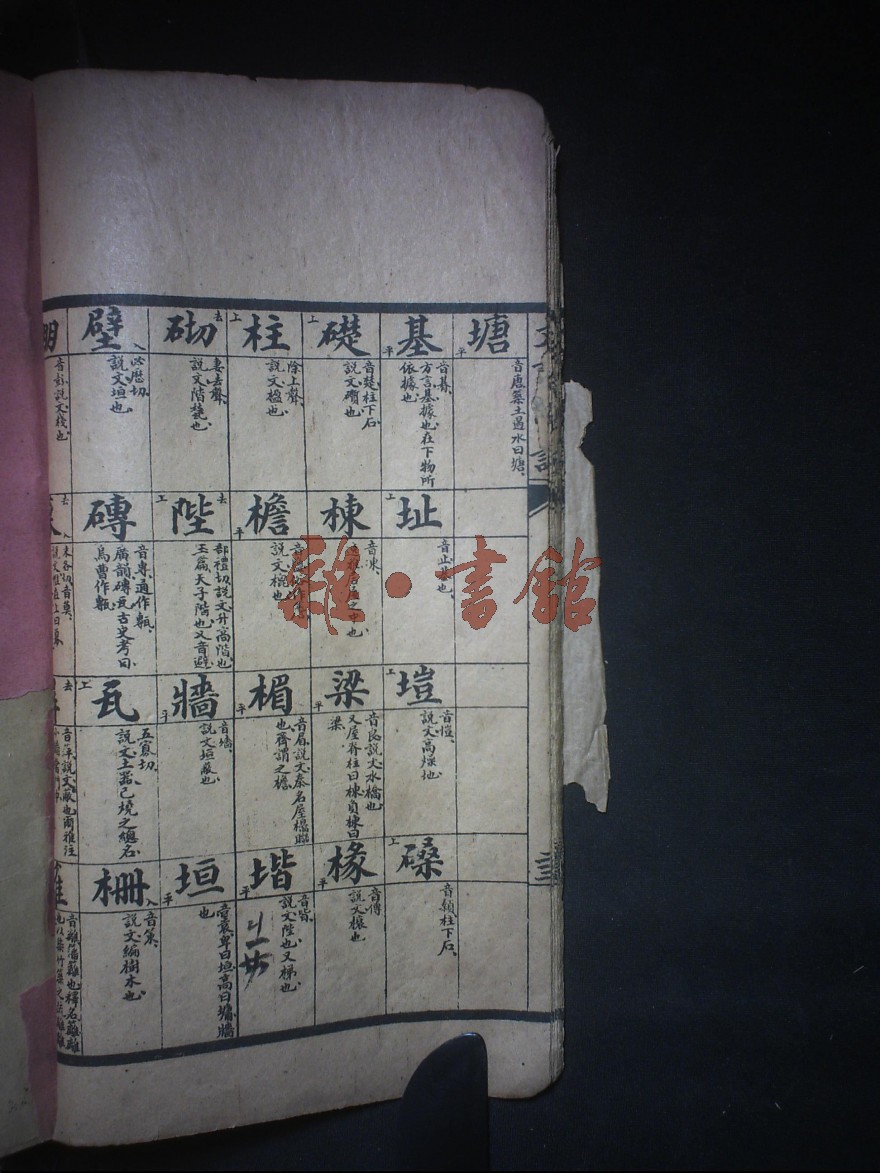 塘 平
音唐築土遏水曰塘
基 平
音朞
方言基據也在下物所
依據也
址 上
音止基也
塏 上
音愷
說文高燥地
磉 上
音顙柱下石
礎 上
音楚柱下石
說文礩也
棟
音凍
梁 平
音良說文水橋也
又屋脊柱曰棟負棟曰
梁
椽 平
音傳
說文榱也
柱 上
除上聲
說文楹也
檐 平
說文㮰也
楣 平
音眉說文秦名屋櫋聯
也齊謂之檐
堦 平
音皆
說文陛也又梯也
砌 去
妻去聲
說文階甃也
陛 上 去
部禮切說文升高階也
玉篇天子階也又音避
牆 平
音墻
說文垣蔽也
垣 平
音袁卑曰垣高曰墉牆
也
壁 入
必歷切
說文垣也
磚
音專通作甎
廣韻磚瓦古史考曰
烏曹作甎
瓦 上
五寡切
說文土器已燒之總名
柵 入
音策
說文編樹木也
音彭說文棧也
末各切音莫
雜·書館